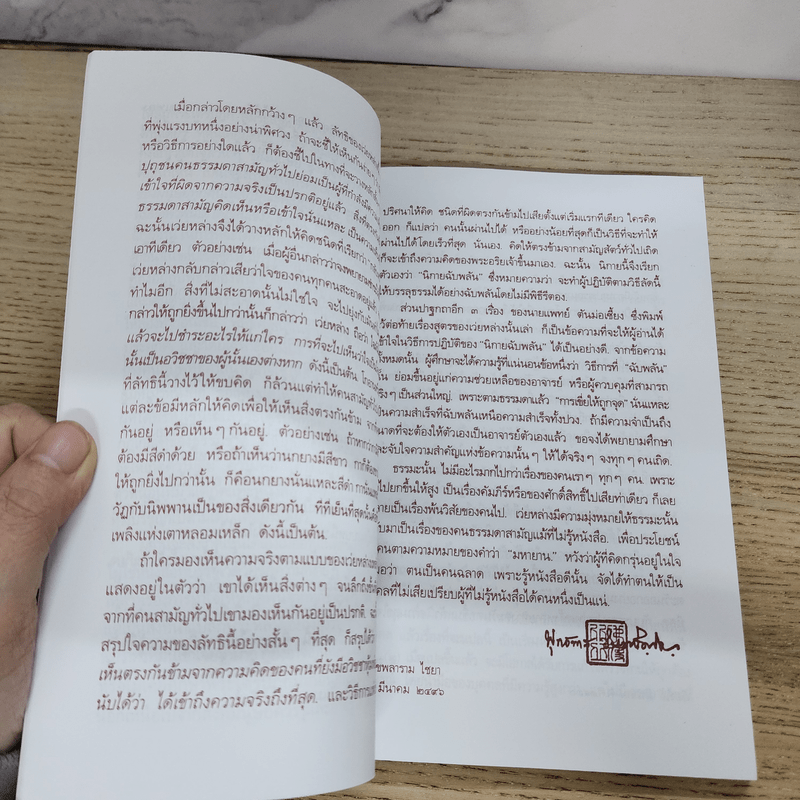 เมื่อกล่าวโดยหลักกว้าง ๆ แล้ว ลัทธิของเว่ยหล่าง
ที่พุ่งแรงบทหนึ่งอย่างน่าพิศวง ถ้าจะชี้ให้เห็นกันง่าย ๆ
หรือวิธีการอย่างใดแล้ว ก็ต้องชี้ไปในทางที่จะวางหลัก
ปุถุชนคนธรรมดาสามัญทั่วไปย่อมเป็นผู้ที่กำลังมีความ
เข้าใจที่ผิดจากความจริงเป็นปรกติอยู่แล้ว สิ่งที่
ธรรมดาสามัญคิดเห็นหรือเข้าใจนั่นแหละ เป็นความ
ฉะนั้นเว่ยหล่างจึงได้วางหลักให้คิดชนิดที่เรียกว่า
เอาทีเดียว ตัวอย่างเช่น เมื่อผู้อื่นกล่าวว่าจงพยายาม
เว่ยหล่างกลับกล่าวเสียว่าใจของคนทุกคนสะอาดอยู่แล้ว
ทำไมอีก สิ่งที่ไม่สะอาดนั้นไม่ใช่ใจ จะไปยุ่งกับมัน
กล่าวให้ถูกยิ่งขึ้นไปกว่านั้นก็กล่าวว่า เว่ยหล่าง ถือว่า
แล้วจะไปชำระอะไรให้แก่ใคร การที่จะไปเห็นว่าใจเป็น
นั้นเป็นอวิชชาของผู้นั้นเองต่างหาก ดังนี้เป็นต้น
ที่ลัทธินี้วางไว้ให้ขบคิด ก็ล้วนแต่ทำให้คนสามัญ
แต่ละข้อมีหลักให้คิดเพื่อให้เห็นสิ่งตรงกันข้าม จาก
กันอยู่ หรือเห็น ๆ กันอยู่. ตัวอย่างเช่น ถ้าหากว่า
ต้องมีสีดำด้วย หรือถ้าเห็นว่านกยางมีสีขาว กาก็ต้อง
ให้ถูกยิ่งไปกว่านั้น ก็คือนกยางนั่นแหละสีดำ กานั่นแหละ
วัฏกับนิพพานเป็นของสิ่งเดียวกัน ที่ที่เย็นที่สุดนั้นคือ
เพลิงแห่งเตาหลอมเหล็ก ดังนี้เป็นต้น
ถ้าใครมองเห็นความจริงตามแบบของเว่ยหล่าง
แสดงอยู่ในตัวว่า เขาได้เห็นสิ่งต่าง ๆ จนลึกถึง
จากที่คนสามัญทั่วไปเขามองเห็นกันอยู่เป็นปรกติ
สรุปใจความของลัทธินี้อย่างสั้น ๆ ที่สุด ก็สรุปได้ว่า
เห็นตรงกันข้ามจากความคิดของคนที่ยังมีอวิชชา
นับได้ว่า ได้เข้าถึงความจริงถึงที่สุด. และวิธีการ
ปริศนาให้คิด ชนิดที่ผิดตรงกันข้ามไปเสียตั้งแต่เริ่มแรกทีเดียว ใครคิด
ออก ก็แปลว่า คนนั้นผ่านไปได้ หรืออย่างน้อยที่สุดก็เป็นวิธีที่จะทำให้
ผ่านไปได้โดยเร็วที่สุด นั่นเอง. คิดให้ตรงข้ามจากสามัญสัตว์ทั่วไปเถิด
ก็จะเข้าถึงความคิดของพระอริยเจ้าขึ้นมาเอง. ฉะนั้น นิกายนี้จึงเรียก
ตัวเองว่า "นิกายฉับพลัน" ซึ่งหมายความว่า จะทำผู้ปฏิบัติตามวิธีลัดนี้
ให้บรรลุธรรมได้อย่างฉับพลันโดยไม่มีพิธีรีตอง.
ส่วนปาฐกถาอีก ๓ เรื่อง ของนายแพทย์ ตันม่อเซี้ยง ซึ่งพิมพ์
ต่อท้ายเรื่องสูตรของเว่ยหล่างนั้นเล่า ก็เป็นข้อความที่จะให้ผู้อ่านได้
เข้าใจในวิธีการปฏิบัติของ "นิกายฉับพลัน" ได้เป็นอย่างดี. จากข้อความ
ทั้งหมดนั้น ผู้ศึกษาจะได้ความรู้ที่แน่นอนข้อหนึ่งว่า วิธีการที่ "ฉับพลัน"
นั้น ย่อมขึ้นอยู่แก่ความช่วยเหลือของอาจารย์ หรือผู้ควบคุมที่สามารถ
จริง ๆ เป็นส่วนใหญ่. เพราะตามธรรมดาแล้ว "การเขี่ยให้ถูกจุด" นั่นแหละ
เป็นความสำเร็จที่ฉับพลันเหนือความสำเร็จทั้งปวง. ถ้ามีความจำเป็นถึง
ขนาดที่จะต้องให้ตัวเองเป็นอาจารย์ตัวเองแล้ว ขอจงได้พยายามศึกษา
และจับใจความสำคัญแห่งข้อความนั้น ๆ ให้ได้จริง ๆ จงทุก ๆ คนเถิด.
ธรรมะนั้น ไม่มีอะไรมากไปกว่าเรื่องของคนเรา ๆ ทุก ๆ คน เพราะ
ไปยกขึ้นให้สูง เป็นเรื่องคัมภีร์หรือของศักดิ์สิทธิ์ไปเสียท่าเดียว ก็เลย
เป็นเรื่องพ้นวิสัยของคนไป. เว่ยหล่างมีความมุ่งหมายให้ธรรมะนั้น
มาเป็นเรื่องของคนธรรมดาสามัญแม้ที่ไม่รู้หนังสือ. เพื่อประโยชน์
คนตามความหมายของคำว่า "มหายาน." หวังว่าผู้ที่คิดกรุ่นอยู่ในใจ
ว่า ตนเป็นคนฉลาด เพราะรู้หนังสือดีนั้น จัดได้ทำตนให้เป็น
ที่ไม่เสียเปรียบผู้ที่ไม่รู้หนังสือได้คนหนึ่งเป็นแน่.
พลาราม ไชยา
มีนาคม ๒๔๙๖